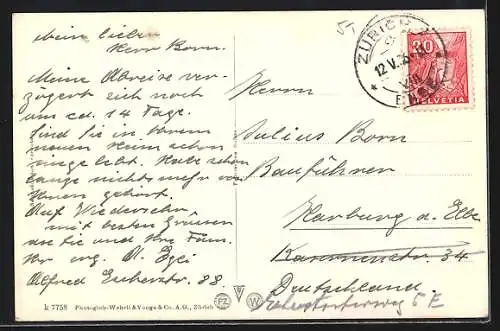 Mein lieber
Herr Born.
Meine Abreise ver-
zögert sich noch
um ca. 14 Tage.
Sind Sie in Ihrem
neuen Heim schon
eingelebt. Habe schon
lange nichts mehr von
Ihnen gehört.
Auf Wiedersehn
mit besten Grüssen
an Sie und Ihre Fam.
Ihr erg. A.
Alfred Escherstr. 88.
k 7758 Photoglob-Wehrli & Vouga & Co. A.G., Zürich
PZ W
ZÜRICH
12.V.36
30
HELVETIA
Herrn
Julius Born
Bauführer
Harburg a. Elbe
34
Deutschland.
5 E